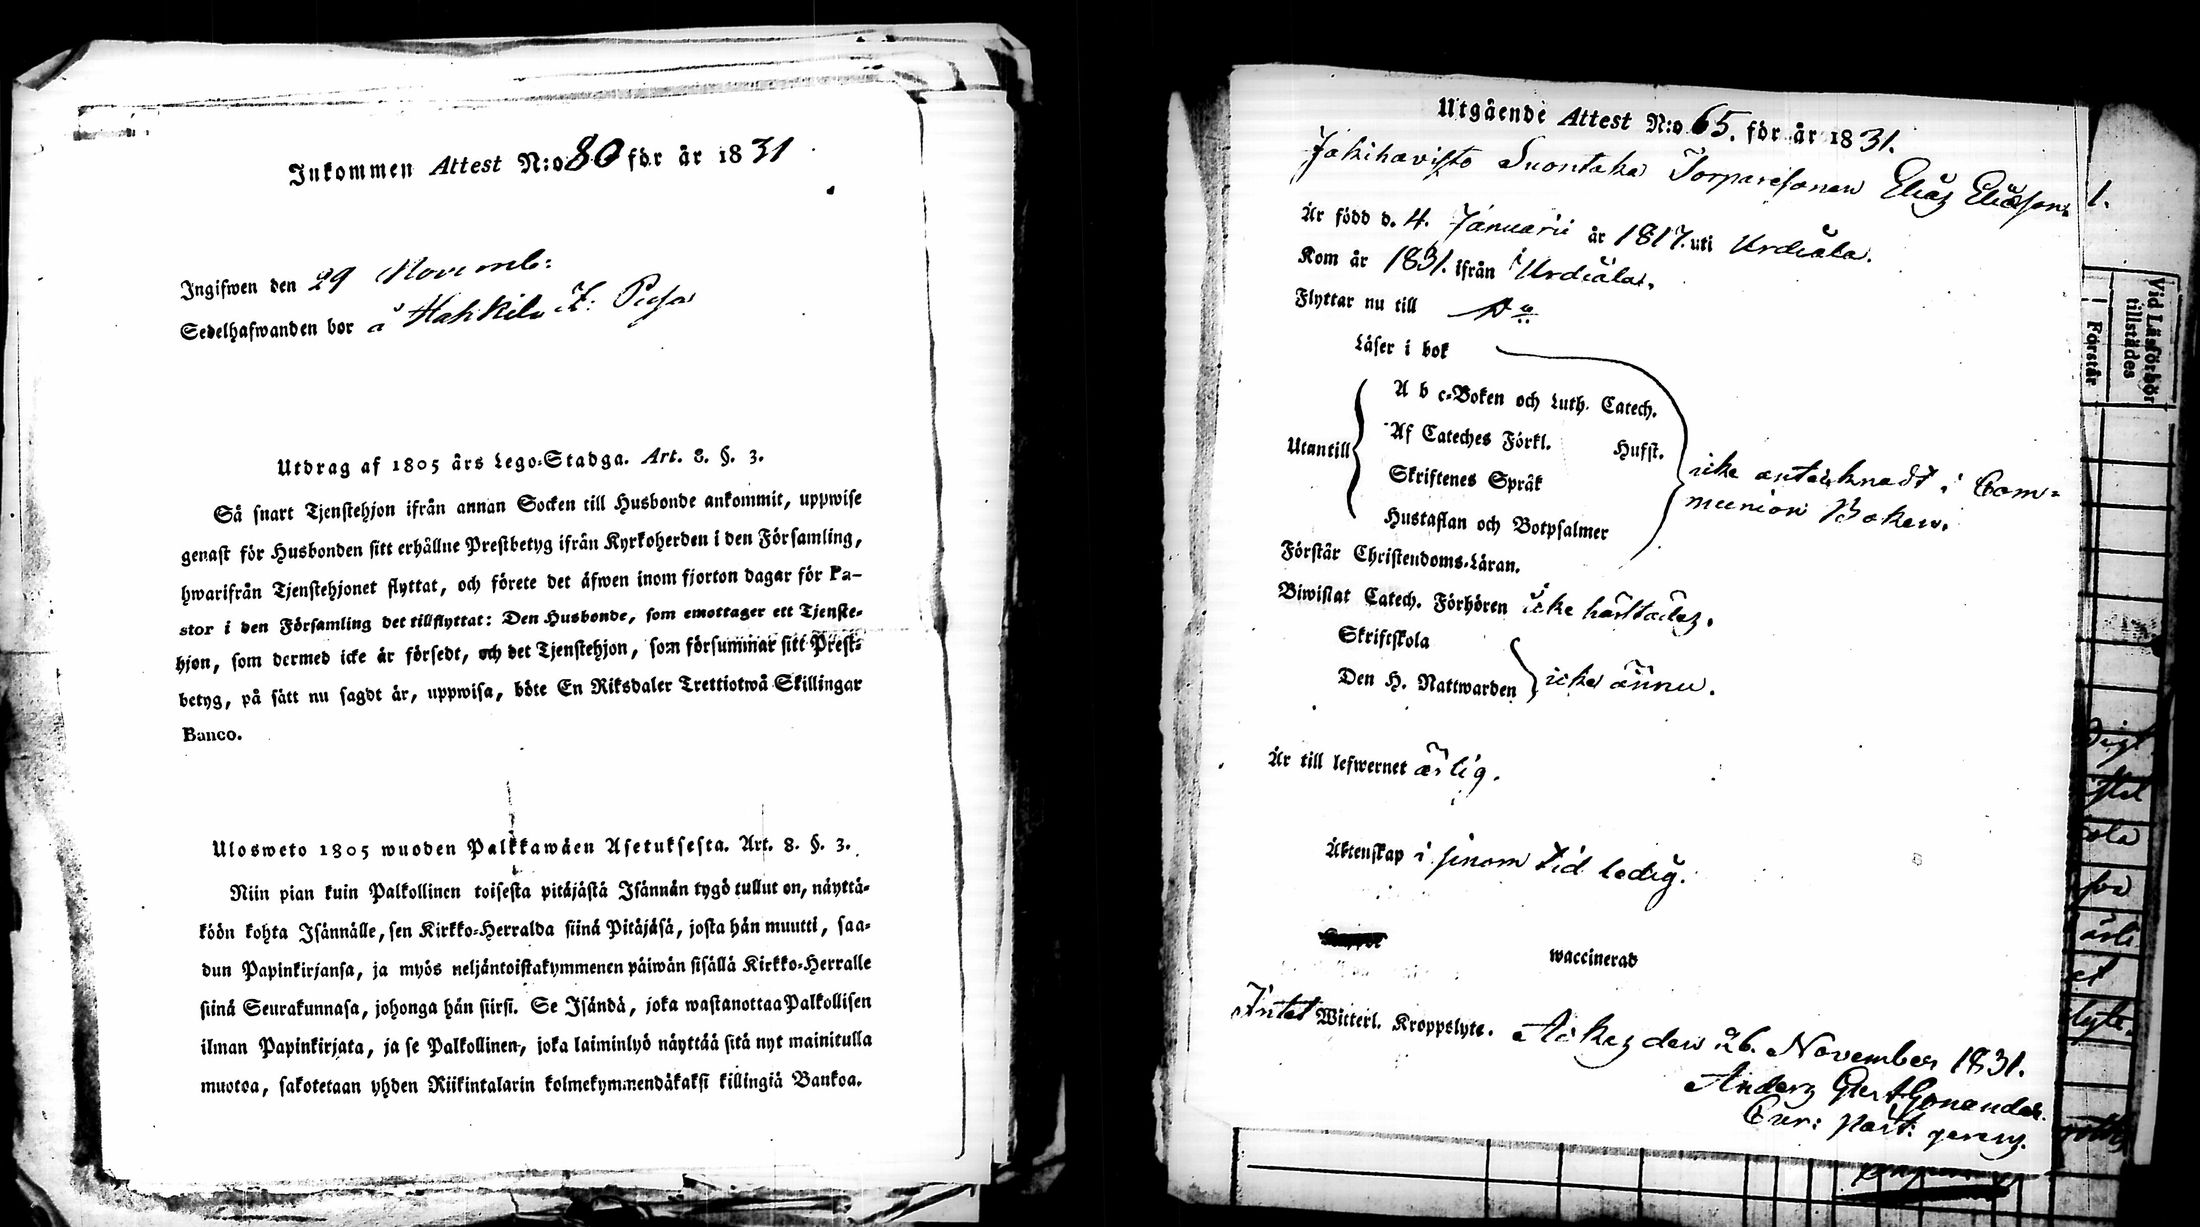 Inkommen Attest N:o 80 för år 1831
Ingifwen den 29 Novemb:
Sedelhafwanden bor å Hakkila
Utdrag af 1805 års Lego-Stadga. Art. 8. §. 3.
Så snart Tjenstehjon ifrån annan Socken till Husbonde ankommit, uppwise
genast för Husbonden sitt erhållne Prestbetyg ifrån Kyrkoherden i den Församling,
hwarifrån Tjenstehjonet flyttat, och förete det äfwen inom fjorton dagar för Pa-
stor i den Församling det tillflyttat: Den Husbonde, som emottager ett Tjenste-
hjon, som dermed icke är försedt, och det Tjenstehjon, som försummar sitt Prest-
betyg, på sätt nu sagdt är, uppwisa, böte En Riksdaler Trettiotwå Skillingar
Banco.
Ulosweto 1805 wuoden Palkkawäen Asetuksesta. Art. 8. §. 3.
Niin pian kuin Palkollinen toisesta pitäjästä Isännän tygö tullut on, näyttä-
köön kohta Isännälle, sen Kirkko-Herralda siinä Pitäjäsä, josta hän muutti, saa-
dun Papinkirjansa, ja myös neljäntoistakymmenen päiwän sisällä Kirkko-Herralle
siinä Seurakunnasa, johonga hän siirsi. Se Isändä, joka wastanottaa Palkollisen
ilman Papinkirjata, ja se Palkollinen, joka laiminlyö näyttää sitä nyt mainitulla
muotoa, sakotetaan yhden Riikintalarin kolmekymmendäkaksi killingiä Bankoa.
Utgående Attest N:o 65. för år 1831.
Jokihavisto Suontaka Torparesonen Elias Eliasson
Är född d. 4. Januarii år 1817. uti Urdiala.
Kom år 1831. ifrån Urdiala.
Flyttar nu till
Läser i bok
Utantill
A b c-Boken och Luth. Catech.
Af Cateches Förkl. Hufst.
Skriftenes Språk
Hustaflan och Botpsalmer
icke antecknadt i Com=
munion Boken.
Förstår Christendoms-Läran.
Biwistat Catech. Förhören icke härstädes.
Skriftskola
Den H. Nattwarden icke ännu.
Är till lefwernet ärlig.
Äktenskap i sinom tid ledig.
waccinerad
Intet Witterl. Kroppslyte. Akas den 26. November 1831.
Anders
Cur: past: gerens.
Vid Läsförhör
tillstädes
Förstår